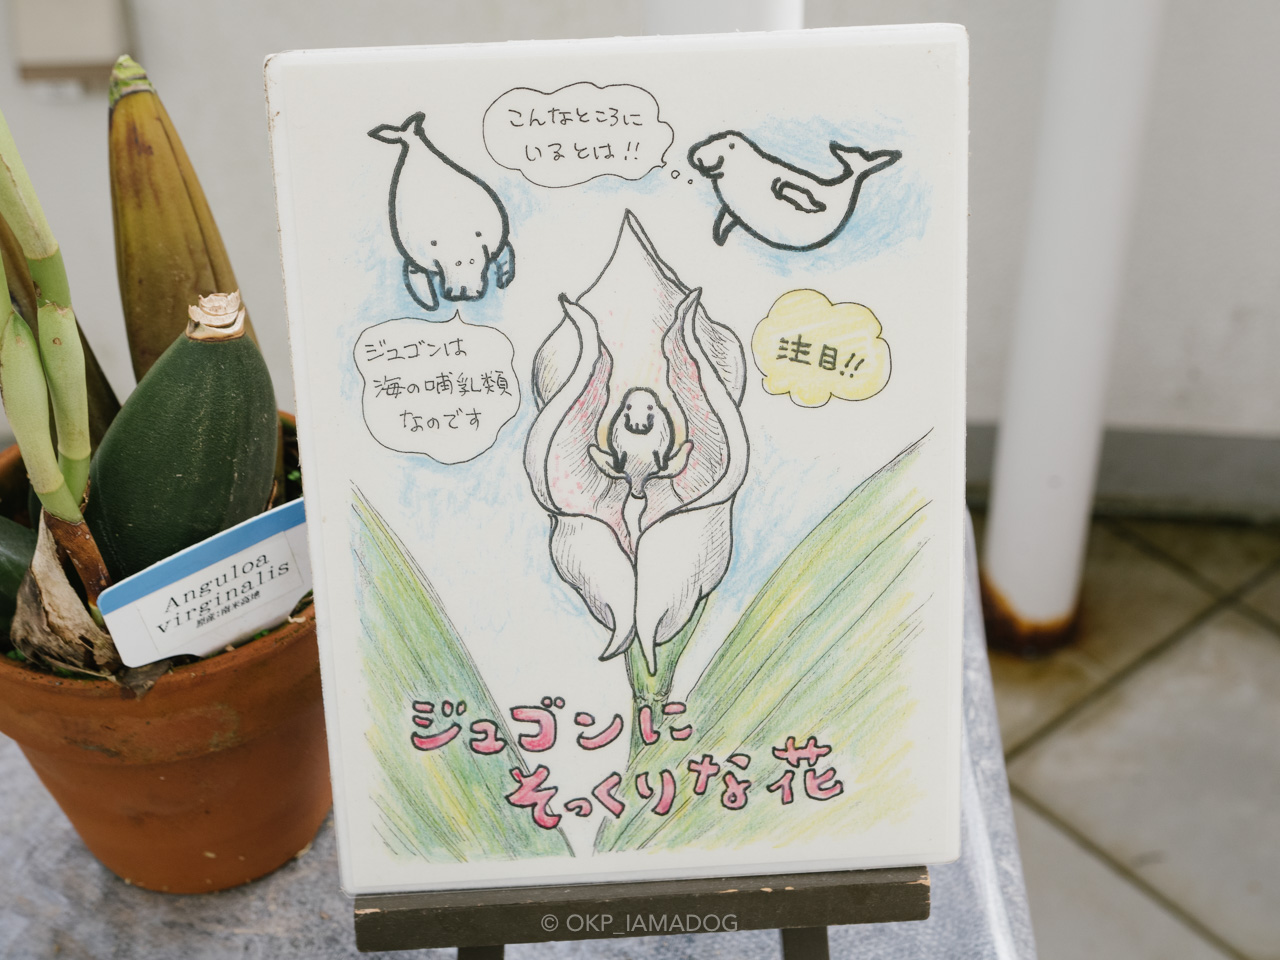 こんなところに
いるとは!!
ジュゴンは
海の哺乳類
なのです
注目!!
ジュゴンに
そっくりな花
Anguloa
virginalis
原産:南米高地
© OKP_IAMADOG